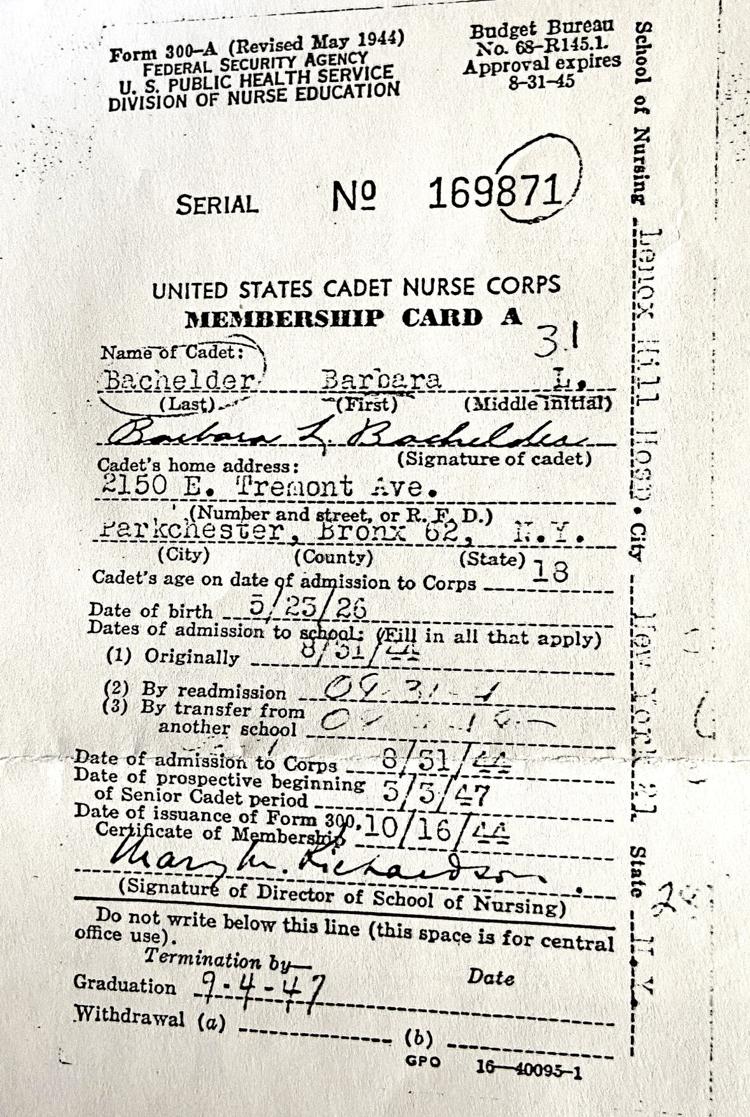 Form 300-A (Revised May 1944)
FEDERAL SECURITY AGENCY
U. S. PUBLIC HEALTH SERVICE
DIVISION OF NURSE EDUCATION
Budget Bureau
No. 68-R145.1.
Approval expires
8-31-45
SERIAL No 169871
UNITED STATES CADET NURSE CORPS
MEMBERSHIP CARD A
31
Name of Cadet:
Bachelder Barbara L.
(Last) (First) (Middle initial)
Barbara L. Bachelder
(Signature of cadet)
Cadet's home address:
2150 E. Tremont Ave.
(Number and street, or R. F. D.)
Parkchester, Bronx 62, N.Y.
(City) (County) (State)
Cadet's age on date of admission to Corps 18
Date of birth 5/23/26
Dates of admission to school: (Fill in all that apply)
(1) Originally 8/31/44
(2) By readmission
(3) By transfer from
another school
Date of admission to Corps 8/31/44
Date of prospective beginning
of Senior Cadet period 3/3/47
Date of issuance of Form 300,
Certificate of Membership 10/16/44
Mary M. Richardson
(Signature of Director of School of Nursing)
Do not write below this line (this space is for central
office use).
Termination by— Date
Graduation 9-4-47
Withdrawal (a) (b)
GPO 16—40095-1
School of Nursing Lenox Hill Hosp. City New York 21 State N.Y.